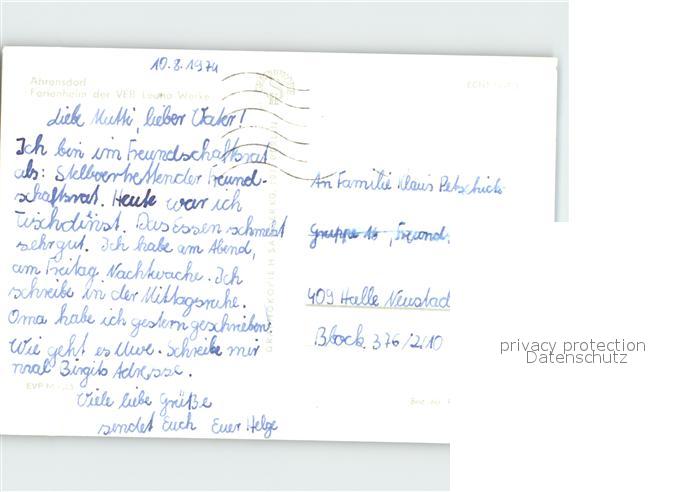 10.8.1974
Ahrensdorf
Ferienheim der VEB Leuna Werke
Liebe Mutti, lieber Vater!
Ich bin im Freundschaftsrat
als: Stellvertrettender Freund-
schaftsrat. Heute war ich
Tischdinst. Das Essen schmekt
sehr gut. Ich habe am Abend,
am Freitag Nachtwache. Ich
schreibe in der Mittagsruhe.
Oma habe ich gestern geschrieben.
Wie geht es Uwe. Schreibe mir
mal Birgits Adresse.
Viele liebe Grüße
sendet Euch Euer Helge
EVP M
An Familie Klaus
Gruppe 16, Freund
409 Halle Neustad
Block. 376/2/10
privacy protection
Datenschutz